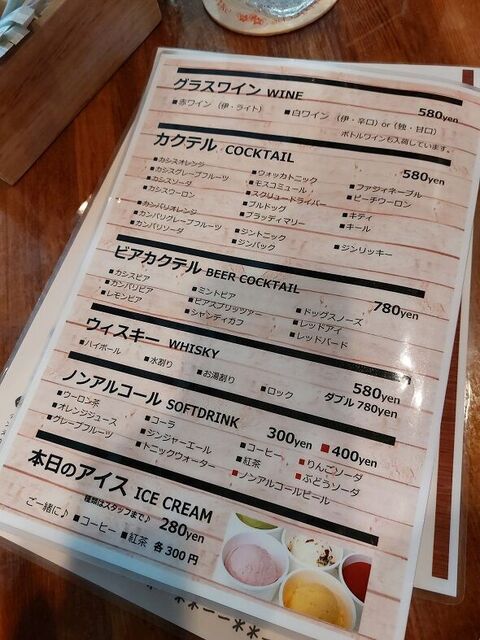 グラスワイン WINE
580yen
■赤ワイン（伊・ライト） ■白ワイン（伊・辛口）or（独・甘口）
ボトルワインも入荷しています。
カクテル COCKTAIL
580yen
■カシスオレンジ ■ウォッカトニック ■ファジィネーブル
■カシスグレープフルーツ ■モスコミュール ■ピーチウーロン
■カシスソーダ ■スクリュードライバー
■カシスウーロン ■ブルドッグ ■キティ
■カンパリオレンジ ■ブラッディマリー ■キール
■カンパリグレープフルーツ ■ジントニック
■カンパリソーダ ■ジンバック ■ジンリッキー
ビアカクテル BEER COCKTAIL
780yen
■カシスビア ■ミントビア ■ドッグスノーズ
■カンパリビア ■ビアスプリッツァー ■レッドアイ
■レモンビア ■シャンディガフ ■レッドバード
ウィスキー WHISKY
580yen
ダブル 780yen
■ハイボール ■水割り ■お湯割り ■ロック
ノンアルコール SOFTDRINK
300yen ■400yen
■ウーロン茶 ■コーラ ■コーヒー ■りんごソーダ
■オレンジジュース ■ジンジャーエール ■紅茶 ■ぶどうソーダ
■グレープフルーツ ■トニックウォーター ■ノンアルコールビール
本日のアイス ICE CREAM
種類はスタッフまで♪ 280yen
ご一緒に♪ ■コーヒー ■紅茶 各300円